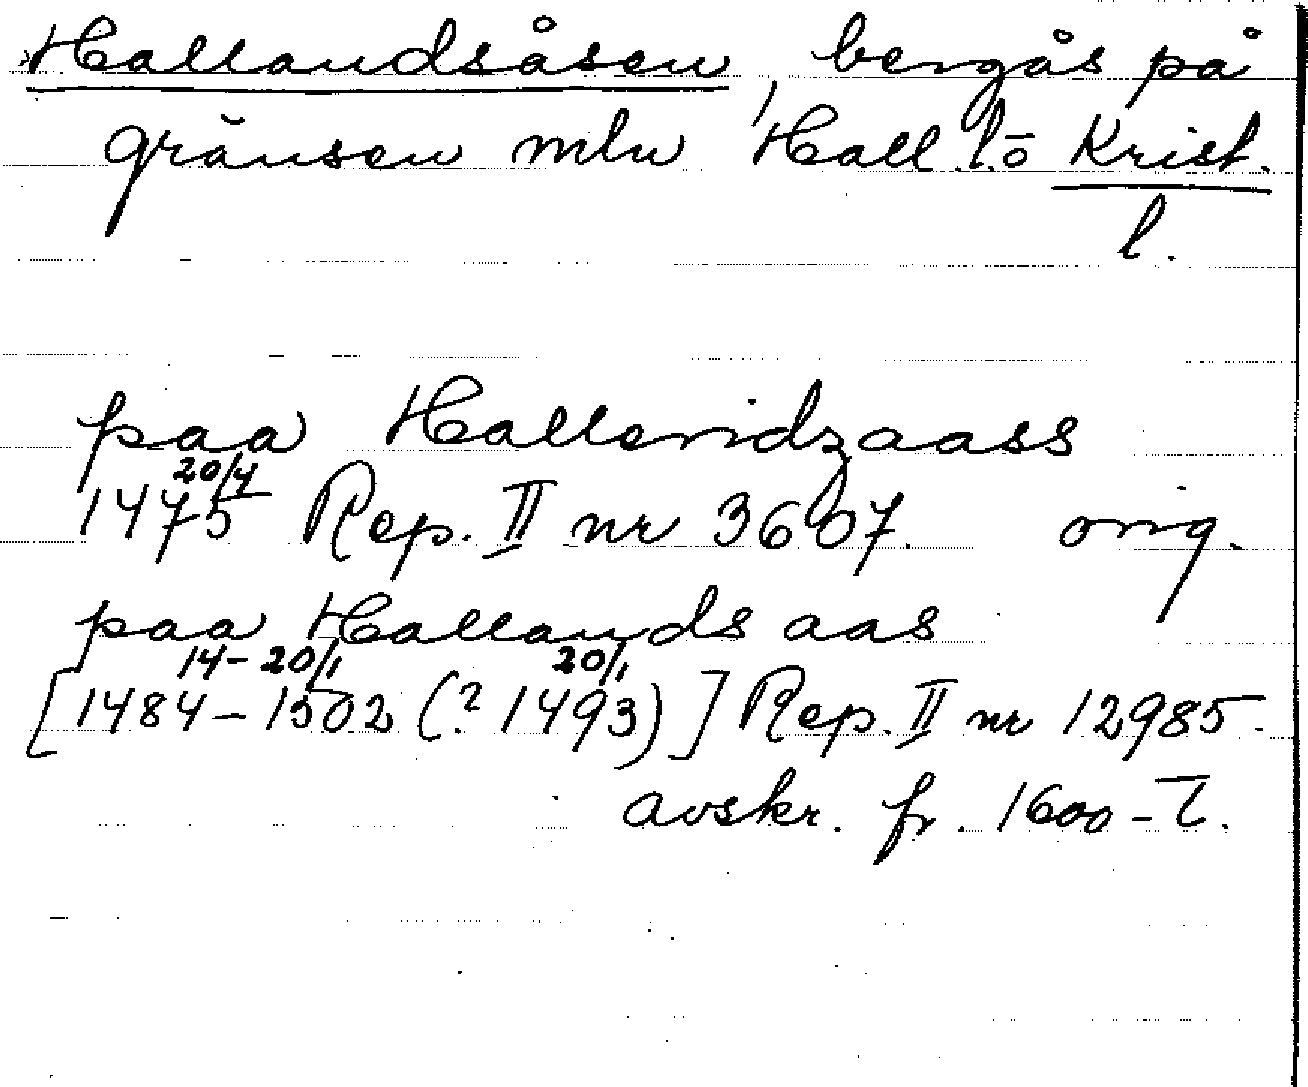 Hallandsåsen, bergås på
gränsen mln Hall. l. o Krist.
l.
paa Hallandzaass
20/4
1475 Rep. II nr 3607. orig.
paa Hallands aas
14-20/1 20/1
[1484-1502 (? 1493)] Rep. II nr 12985.
avskr. fr. 1600-t.